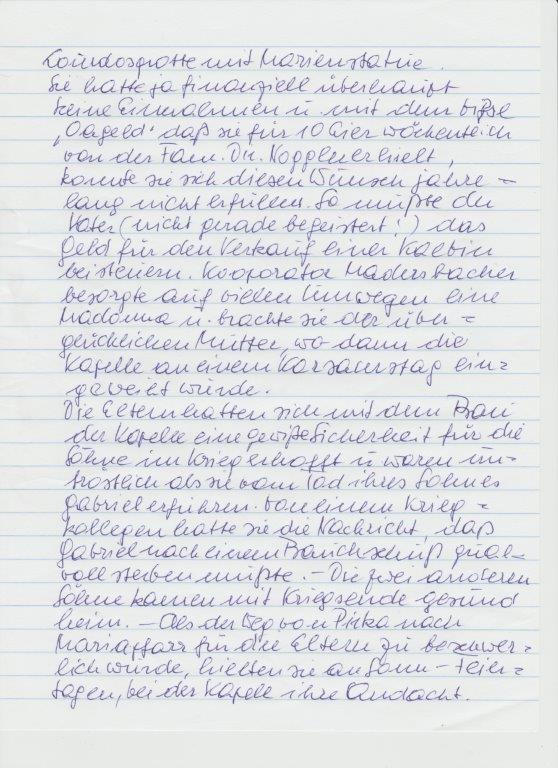 Lourdesgrotte mit Marienstatue.
Sie hatte ja finanziell überhaupt
keine Einnahmen u. mit dem bißl
"Oageld" daß sie für 10 Eier wöchentlich
von der Fam. Dr. Kogglererhielt,
konnte sie sich diesen Wunsch jahre=
lang nicht erfüllen. So mußte der
Vater (nicht gerade begeistert!) das
Geld für den Verkauf einer Kalbin
beisteuern. Kooperator Madersbacher
besorgte auf vielen Umwegen eine
Madonna u. brachte sie der über=
glücklichen Mutter, wo dann die
Kapelle an einem Karsamstag ein=
geweiht wurde.
Die Eltern hatten sich mit dem Bau
der Kapelle eine gewiße Sicherheit für die
Söhne im Krieg erhofft u. waren un=
tröstlich als sie vom Tod ihres Sohnes
Gabriel erfuhren. Von einem Krieg=
kollegen hatte sie die Nachricht, daß
Gabriel nach einem Bauchschuß qual=
voll sterben mußte. – Die zwei anderen
Söhne kamen mit Kriegsende gesund
heim. – Als der Weg von Pirka nach
Mariapfarr für die Eltern zu beschwer=
lich wurde, hielten sie an Sonn – Feier=
tagen, bei der Kapelle ihre Andacht.